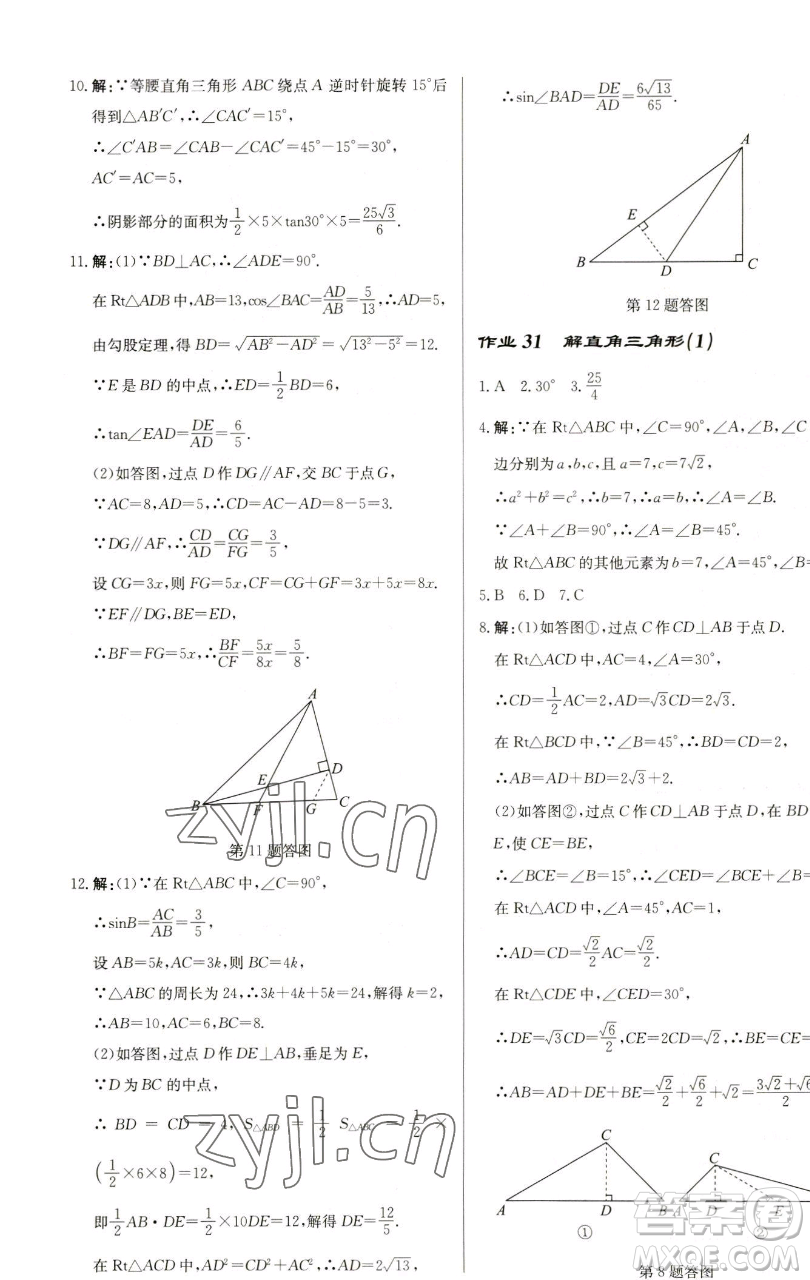 10. 解:∵等腰直角三角形 ABC 绕点 A 逆时针旋转 15°后
得到△AB′C′,∴∠CAC′=15°,
∴∠C′AB=∠CAB-∠CAC′=45°-15°=30°,
AC′=AC=5,
∴阴影部分的面积为1/2×5×tan30°×5=25√3/6.
11. 解:(1)∵BD⊥AC,∴∠ADE=90°.
在 Rt△ADB 中,AB=13,cos∠BAC=AD/AB=5/13,∴AD=5,
由勾股定理,得 BD=√(AB²-AD²)=√(13²-5²)=12.
∵E 是 BD 的中点,∴ED=1/2BD=6,
∴tan∠EAD=DE/AD=6/5.
(2)如答图,过点 D 作 DG∥AF,交 BC 于点 G,
∵AC=8,AD=5,∴CD=AC-AD=8-5=3.
∵DG∥AF,∴CD/AD=CG/FG=3/5,
设 CG=3x,则 FG=5x,CF=CG+GF=3x+5x=8x.
∵EF∥DG,BE=ED,
∴BF=FG=5x,∴BF/CF=5x/8x=5/8.
A
D
E
B
F
G
C
第 11 题答图
12. 解:(1)∵在 Rt△ABC 中,∠C=90°,
∴sinB=AC/AB=3/5,
设 AB=5k,AC=3k,则 BC=4k,
∵△ABC 的周长为 24,∴3k+4k+5k=24,解得 k=2,
∴AB=10,AC=6,BC=8.
(2)如答图,过点 D 作 DE⊥AB,垂足为 E,
∵D 为 BC 的中点,
∴ BD = CD = 4, S△ABD = 1/2 S△ABC = 1/2 ×
(1/2×6×8)=12,
即1/2AB·DE=1/2×10DE=12,解得 DE=12/5.
在 Rt△ACD 中,AD²=CD²+AC²,∴AD=2√13,
∴sin∠BAD=DE/AD=6√13/65.
A
E
B
D
C
第 12 题答图
作业 31 解直角三角形(1)
1. A 2. 30° 3. 25/4
4. 解:∵在 Rt△ABC 中,∠C=90°,∠A,∠B,∠C
边分别为 a,b,c,且 a=7,c=7√2,
∴a²+b²=c²,∴b=7,∴∠A=∠B.
∵∠A+∠B=90°,∴∠A=45°.
故 Rt△ABC 的其他元素为 b=7,∠A=45°,∠B
5. B 6. D 7. C
8. 解:(1)如答图①,过点 C 作 CD⊥AB 于点 D.
在 Rt△ACD 中,AC=4,∠A=30°,
∴CD=1/2AC=2,AD=√3CD=2√3.
在 Rt△BCD 中,∵∠B=45°,∴CD=BD=2,
∴AB=AD+BD=2√3+2.
(2)如答图②,过点 C 作 CD⊥AB 于点 D,在 BD
E,使 CE=BE.
∴∠BCE=∠B=15°,∴∠CED=∠BCE+∠B
在 Rt△ACD 中,∠A=45°,AC=1,
∴AD=CD=√2/2AC=√2/2.
在 Rt△CDE 中,∠CED=30°,
∴DE=√3CD=√6/2,CE=2CD=√2,∴BE=CE
∴AB=AD+DE+BE=√2/2+√6/2+√2=3√2+√6/2
C
A
D
B
①
C
A
D
E
②
第 8 题答图
zyjl.cn
zyjl.cn
答案圈